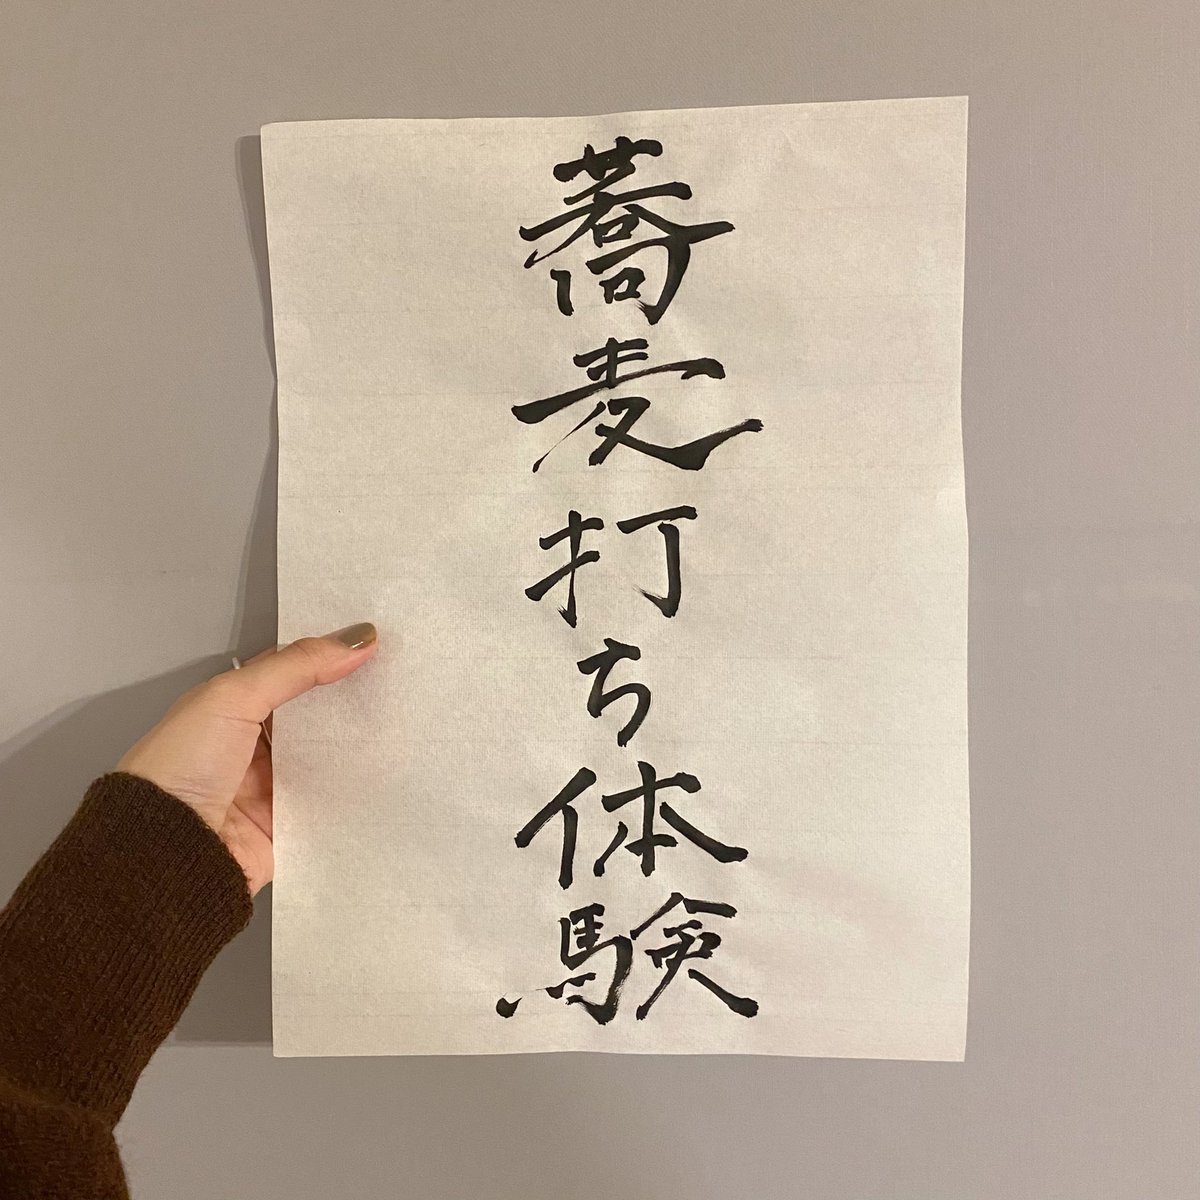 蕎麦打ち体験